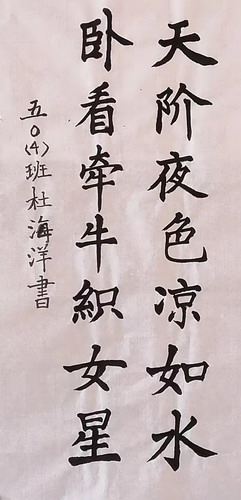 天阶夜色凉如水
卧看牵牛織女星
五0(4)班杜海洋書